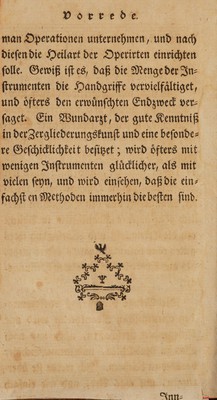 Vorrede.
man Operationen unternehmen, und nach
diesen die Heilart der Operirten einrichten
solle. Gewiß ist es, daß die Menge der In-
strumenten die Handgriffe vervielfältiget,
und öfters den erwünschten Endzweck ver-
saget. Ein Wundarzt, der gute Kenntniß
in der Zergliederungskunst und eine besonde-
re Geschicklichkeit besitzet; wird öfters mit
wenigen Instrumenten glücklicher, als mit
vielen seyn, und wird einsehen, daß die ein-
fachsten Methoden immerhin die besten sind.
Inn-